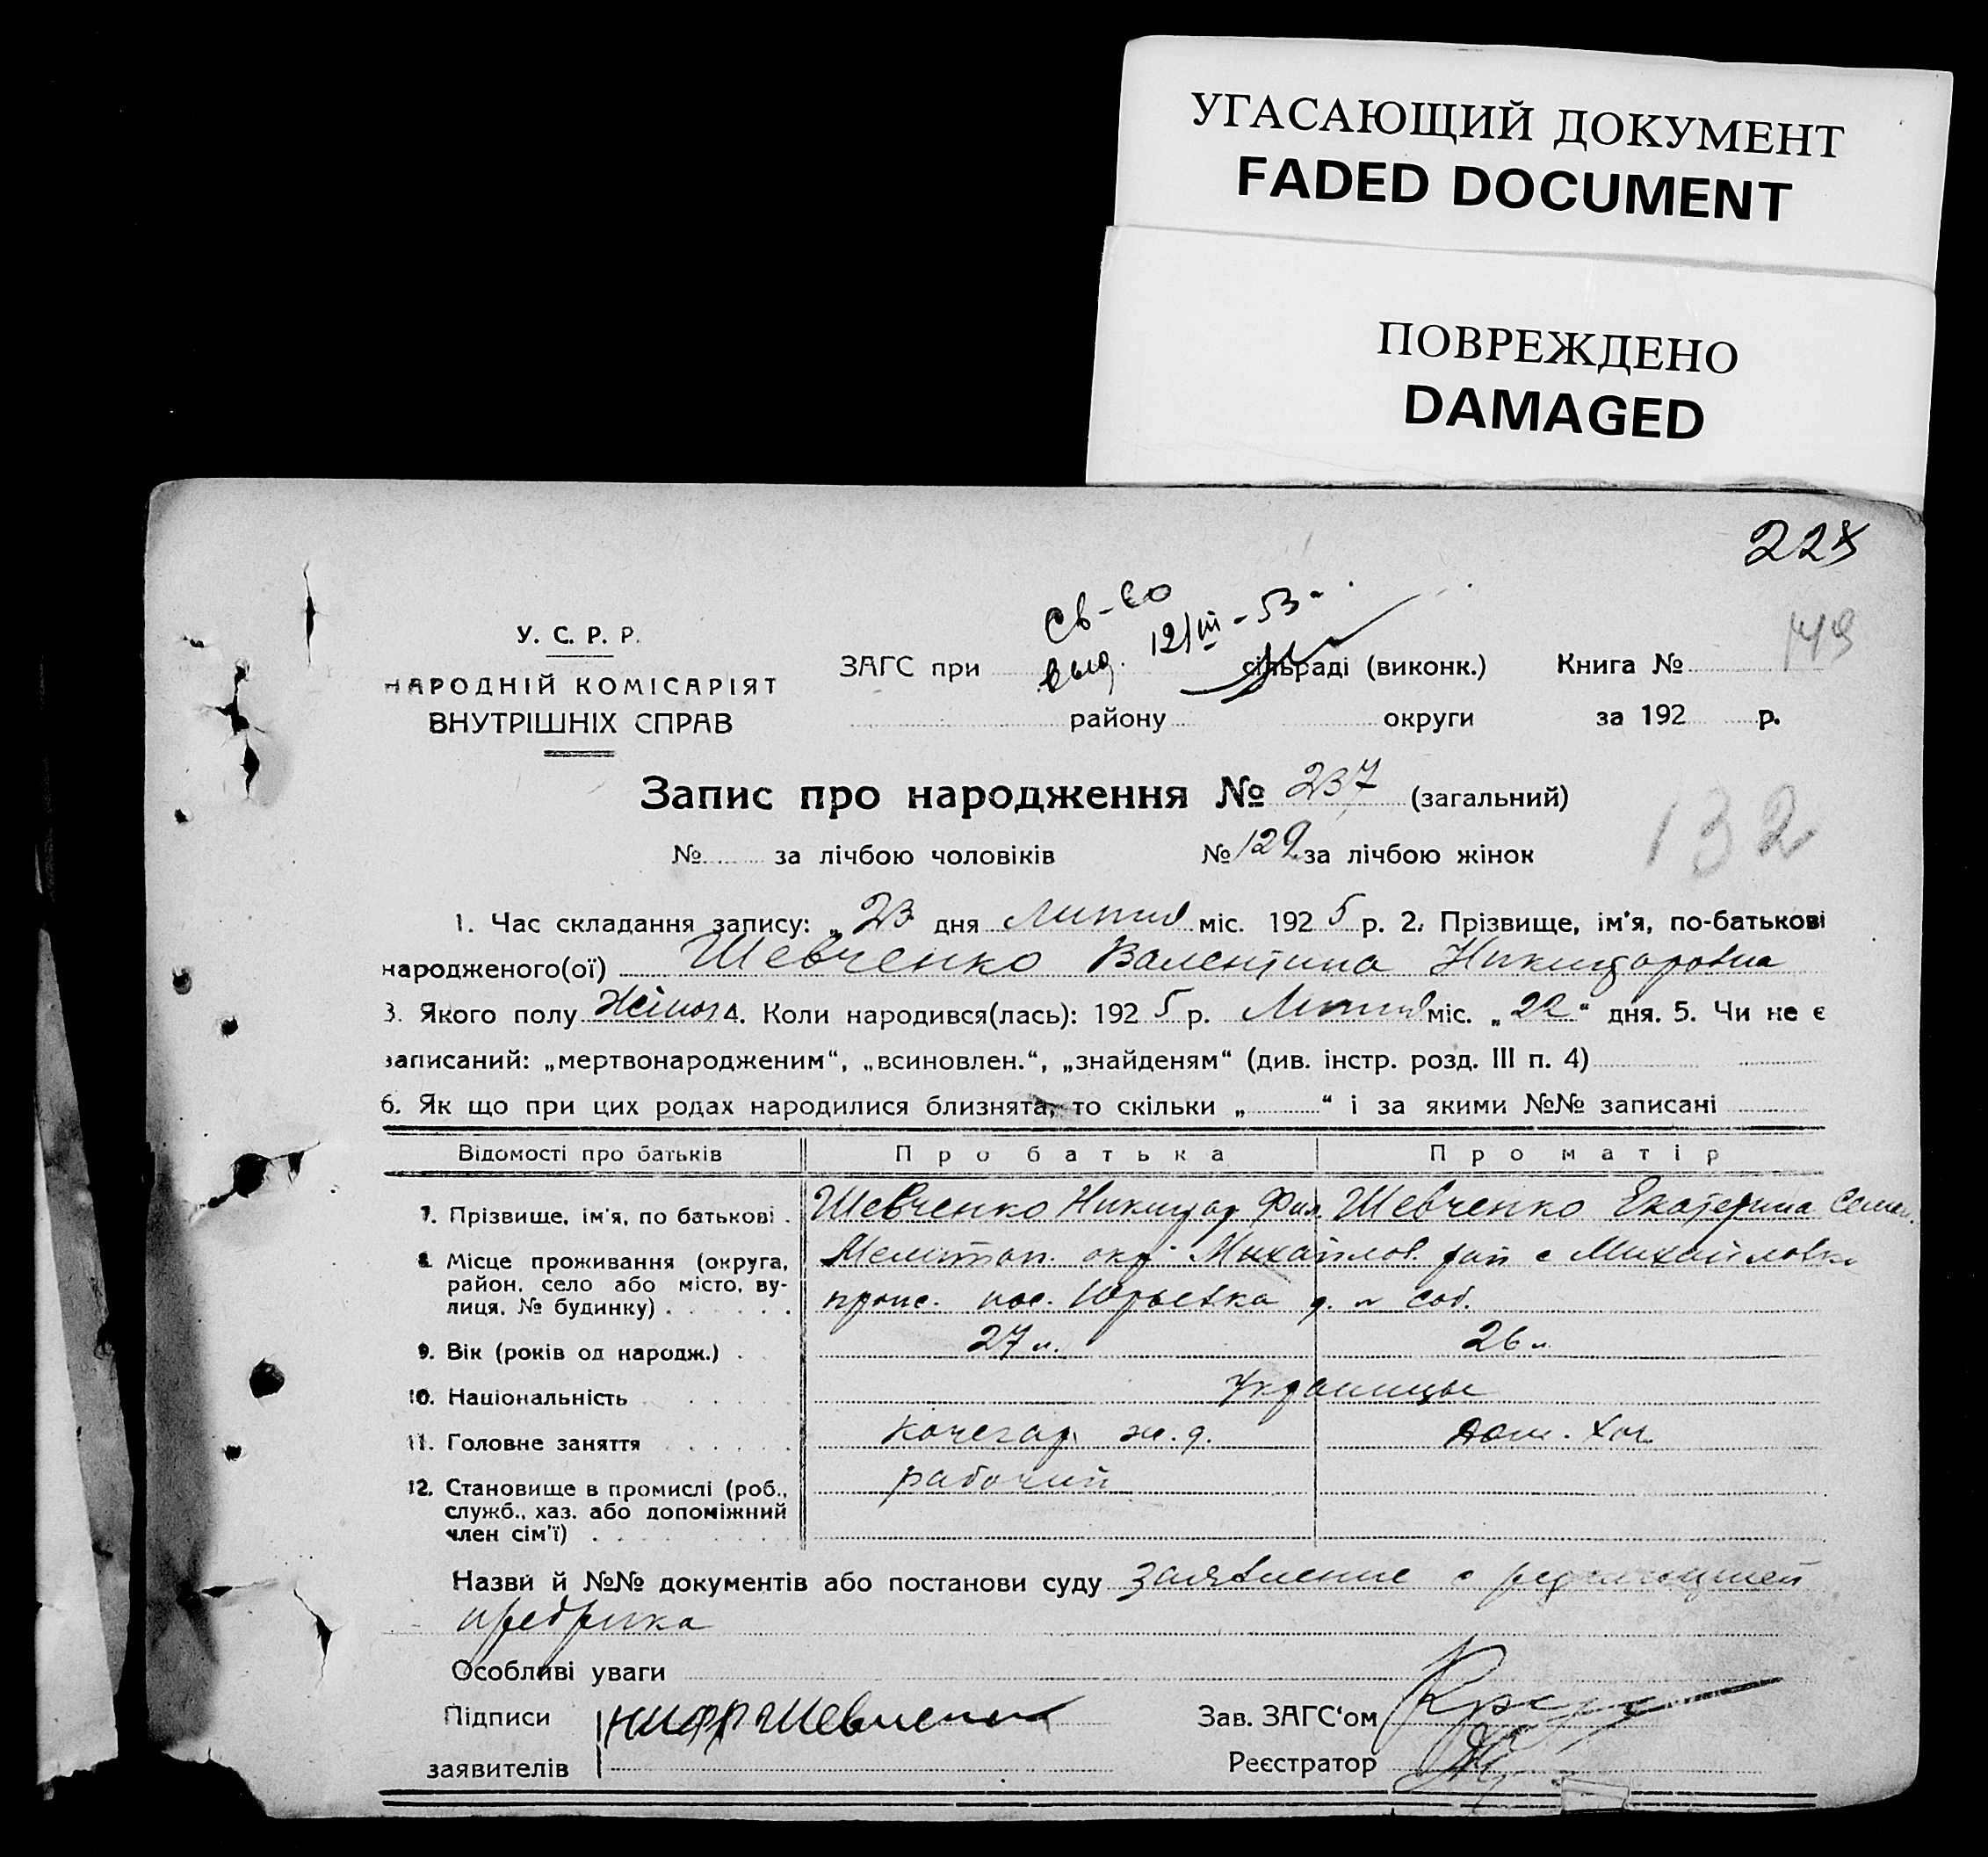 УГАСАЮЩИЙ ДОКУМЕНТ
FADED DOCUMENT
ПОВРЕЖДЕНО
DAMAGED
228
143
Св-во
выд. 12/III-53
У. С. Р. Р.
НАРОДНІЙ КОМІСАРІЯТ
ВНУТРІШНІХ СПРАВ
ЗАГС при сільраді (виконк.) Книга №
району округи за 192 р.
Запис про народження № 237 (загальний)
№ за лічбою чоловіків № 129 за лічбою жінок
132
1. Час складання запису: „23 дня Липня міс. 1925 р. 2. Прізвище, ім'я, по-батькові
народженого(ої) Шевченко Валентина Никифоровна
3. Якого полу Жіноч 4. Коли народився(лась): 1925 р. Липня міс. „22“ дня. 5. Чи не є
записаний: „мертвонародженим“, „всиновлен.“, „знайденям“ (див. інстр. розд. III п. 4)
6. Як що при цих родах народилися близнята, то скільки „ “ і за якими №№ записані
Відомості про батьків Про батька Про матір
7. Прізвище, ім'я, по батькові . Шевченко Никифор Фил. Шевченко Екатерина Семен.
8. Місце проживання (округа, Мелитоп. окр. Михайлов. рай с Михайловка
район, село або місто, ву-
лиця, № будинку) . . . . . . пос. Юрьевка д. соб.
9. Вік (років од народж.) . 27 л. 26 л
10. Національність Украинцы
11. Головне заняття . . . . . кочегар ж.д. дом. хоз.
12. Становище в промислі (роб., рабочий
служб., хаз. або допоміжний
член сім'ї) . . . . . . . .
Назви й №№ документів або постанови суду Заявление с резолюцией
Особливі уваги
Підписи НикфШевченко Зав. ЗАГС'ом
заявителів Реєстратор